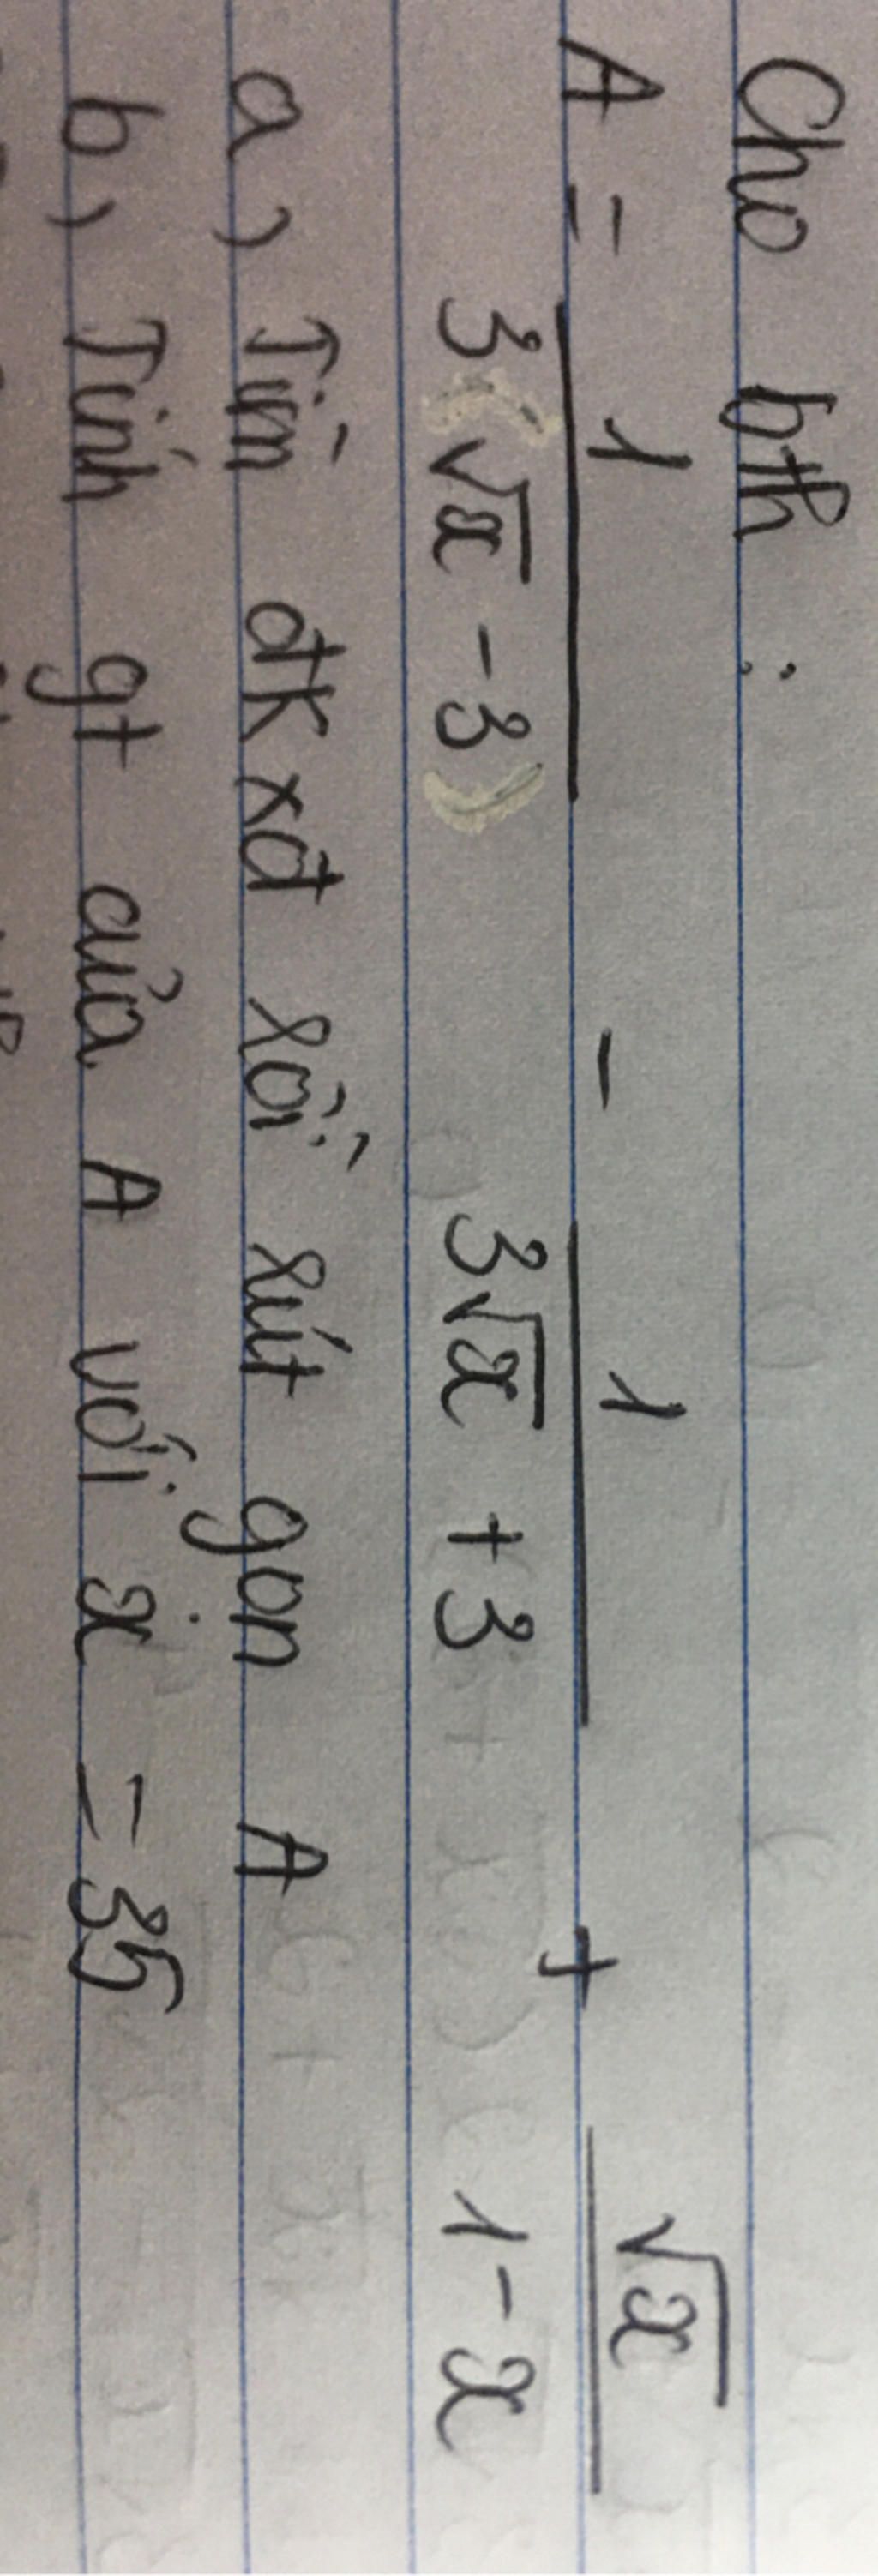 Cho bth :
A = 1/(3√x - 3) - 1/(3√x + 3) + √x/(1 - x)
a, Tìm đkxđ rồi rút gọn A
b, Tính gt của A với x = 35